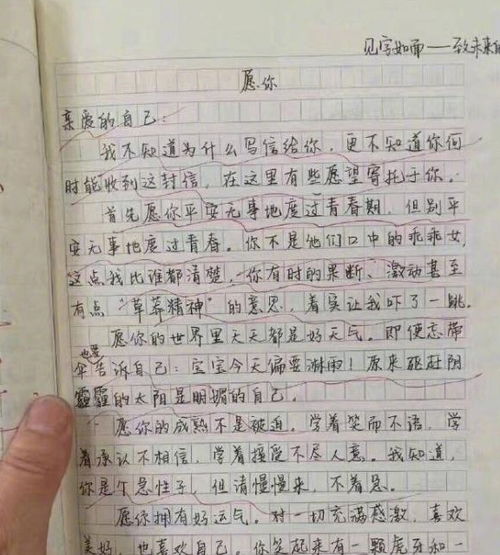 见字如面——致未来的
愿你
亲爱的自己：
我不知道为什么写信给你，更不知道你何
时能收到这封信，在这里有些愿望寄托于你，
首先愿你平安无事地度过青春期，但别平
安无事地度过青春。你不是他们口中的乖乖女，
这点我比谁都清楚，你有时的果断、激动甚至
有点“草莽精神”的意思，着实让我吓了一跳。
愿你的世界里天天都是好天气。即使忘带
伞也要告诉自己：宝宝今天偏要淋雨！原来驱赶阴
霾的太阳是明媚的自己。
愿你的成熟不是被迫。学着笑而不语，学
着承认不相信，学着接受不尽人意。我知道，
你是个急性子，但请慢慢来，不着急。
愿你拥有好运气。对一切充满感激，喜欢
美好，也喜欢自己。你笑起来有一颗虎牙和一